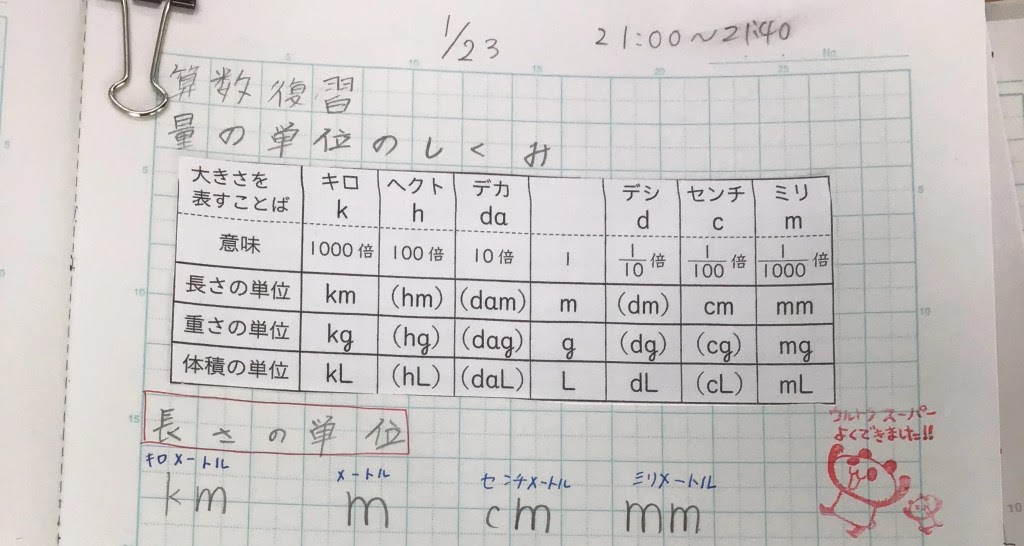 1/23 21:00～21:40
No.
算数復習
量の単位のしくみ
大きさを表すことば キロ k ヘクト h デカ da デシ d センチ c ミリ m
意味 1000倍 100倍 10倍 1 1/10倍 1/100倍 1/1000倍
長さの単位 km (hm) (dam) m (dm) cm mm
重さの単位 kg (hg) (dag) g (dg) (cg) mg
体積の単位 kL (hL) (daL) L dL (cL) mL
ウルトラスーパー
よくできました!!
長さの単位
キロメートル メートル センチメートル ミリメートル
km m cm mm